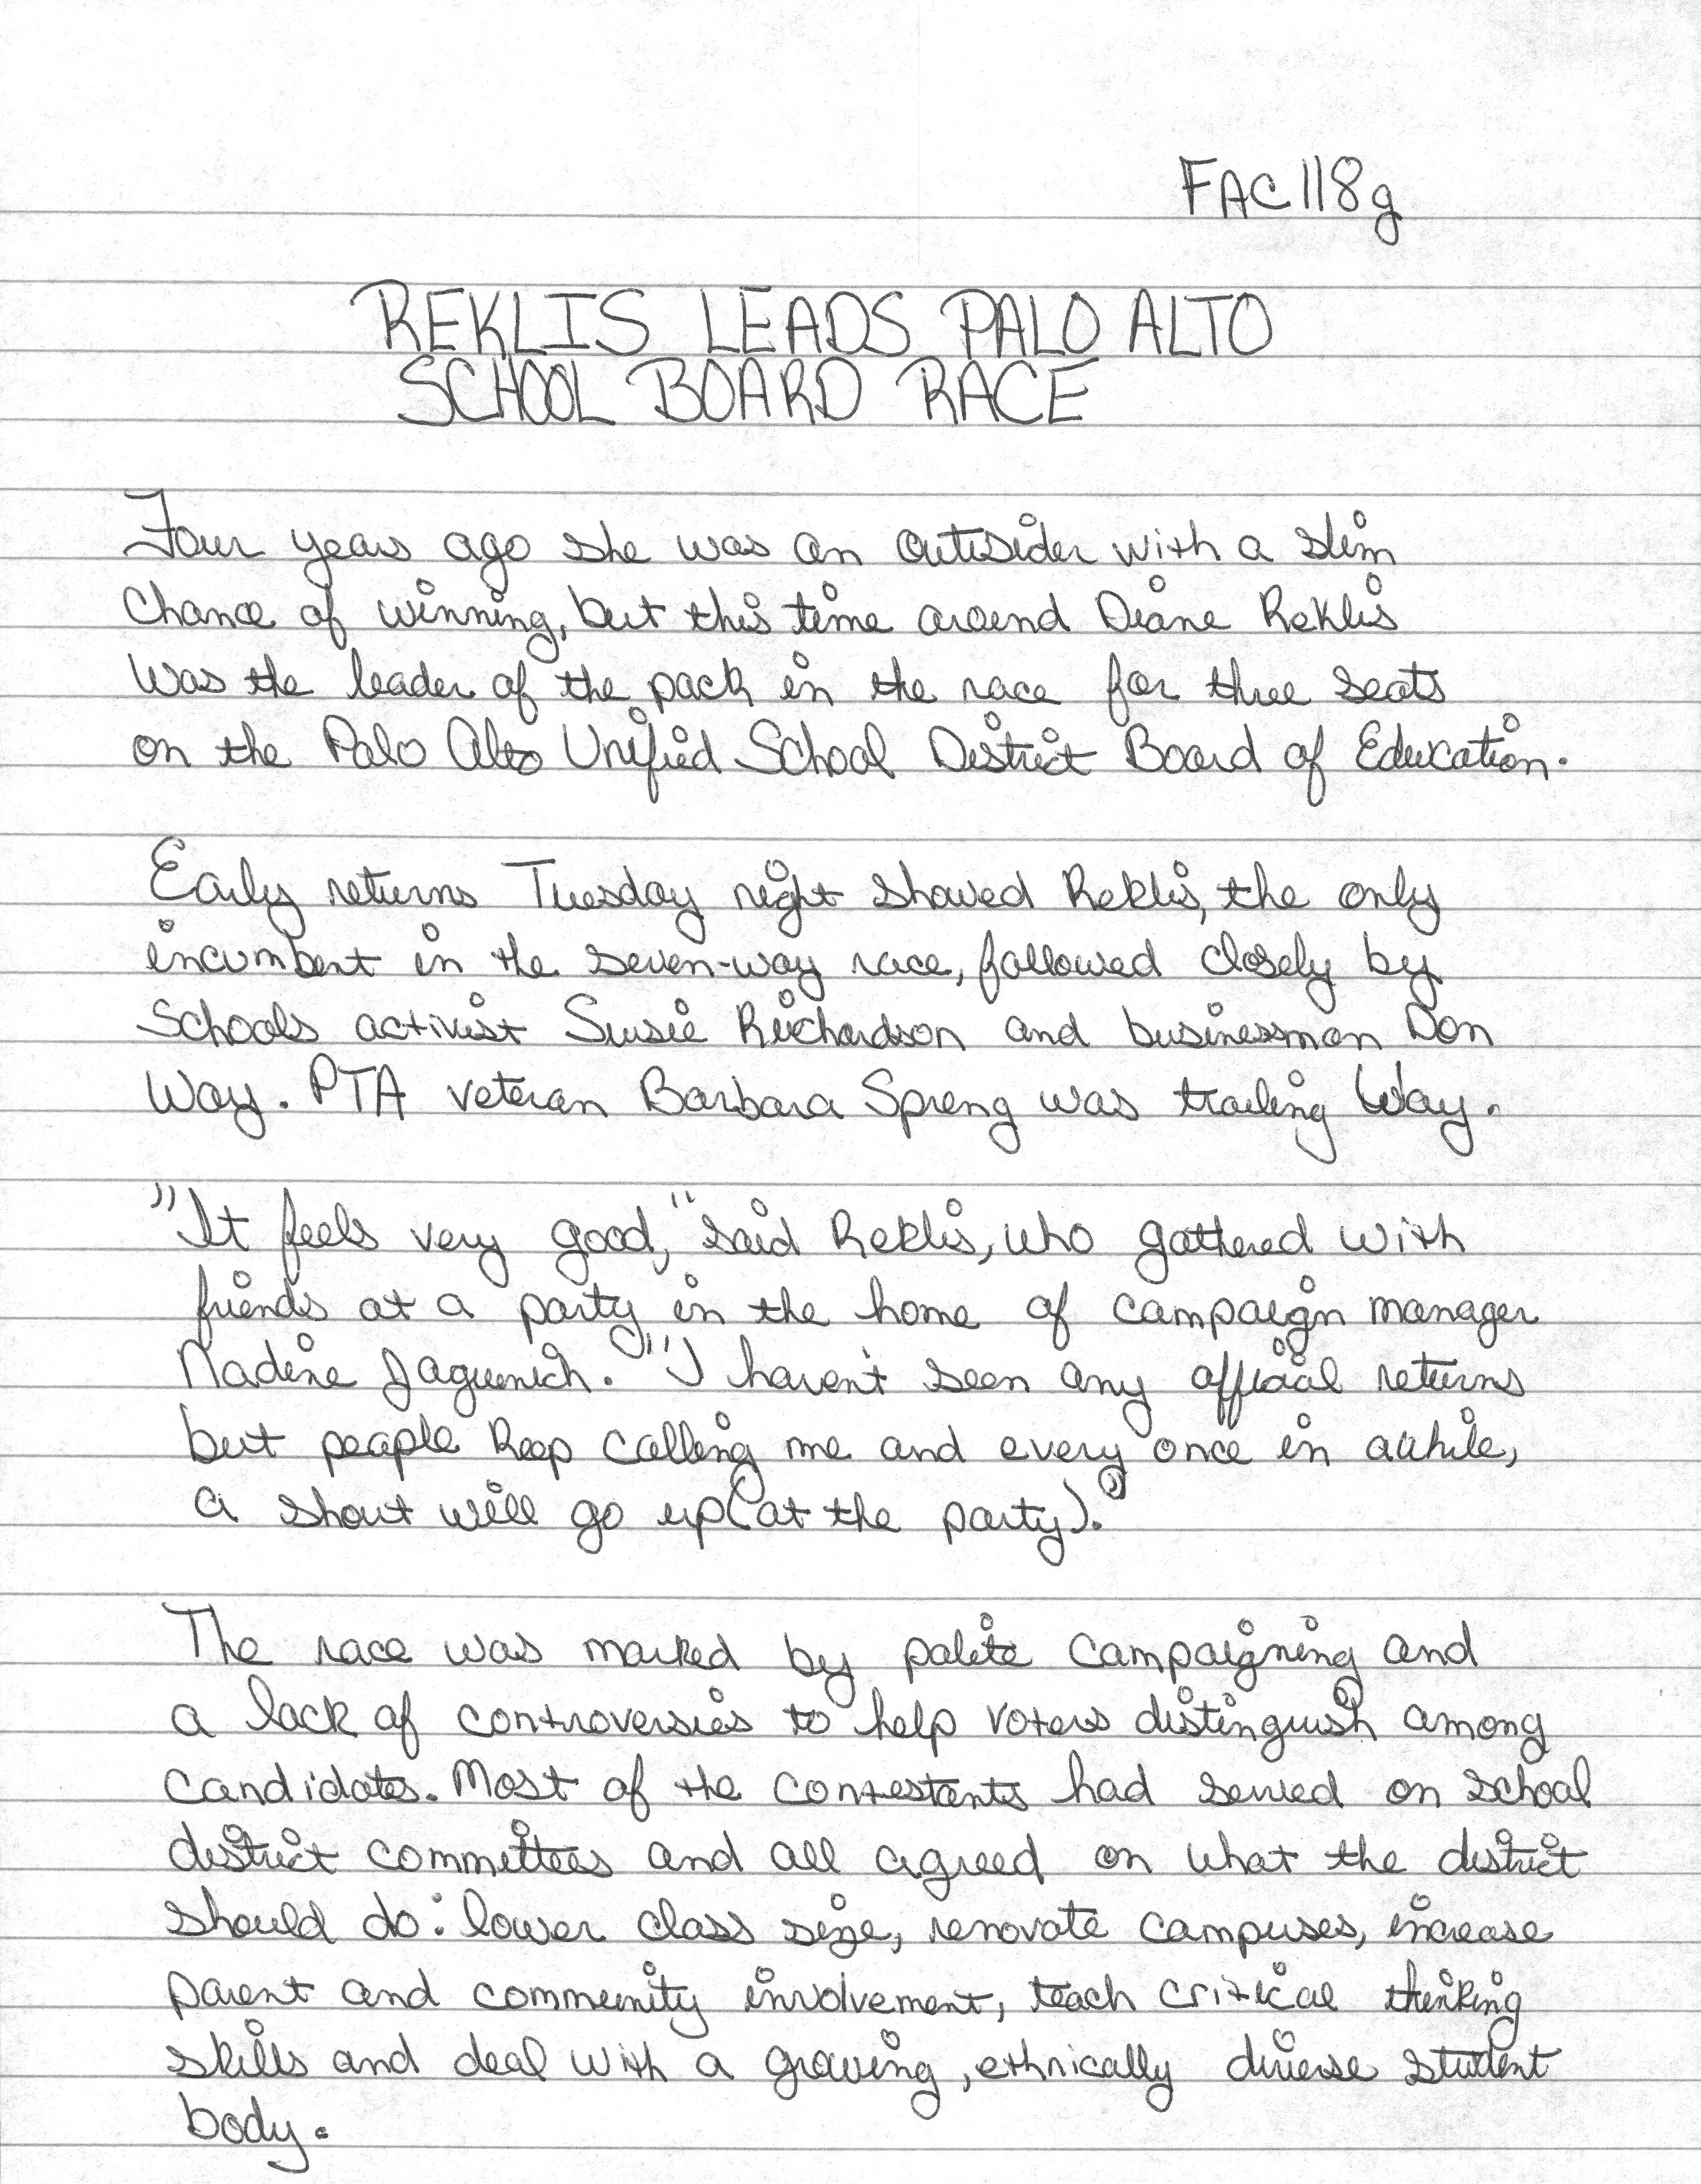 FAC118g
REKLIS LEADS PALO ALTO
SCHOOL BOARD RACE
Four years ago she was an outsider with a slim
Chance of winning, but this time around Diane Reklis
was the leader of the pack in the race for three seats
on the Palo Alto Unified School District Board of Education.
Early returns Tuesday night showed Reklis, the only
incumbent in the seven-way race, followed closely by
Schools activist Susie Richardson and businessman Don
Way. PTA veteran Barbara Spreng was trailing Way.
"It feels very good," said Reklis, who gathered with
friends at a party in the home of campaign manager
Nadine Jaguenich. "I haven't seen any official returns
but people keep calling me and every once in awhile,
a shout will go up (at the party)."
The race was marked by polite campaigning and
a lack of controversies to help voters distinguish among
candidates. Most of the contestants had served on school
district committees and all agreed on what the district
should do: lower class size, renovate campuses, increase
parent and community involvement, teach critical thinking
skills and deal with a growing, ethnically diverse student
body.